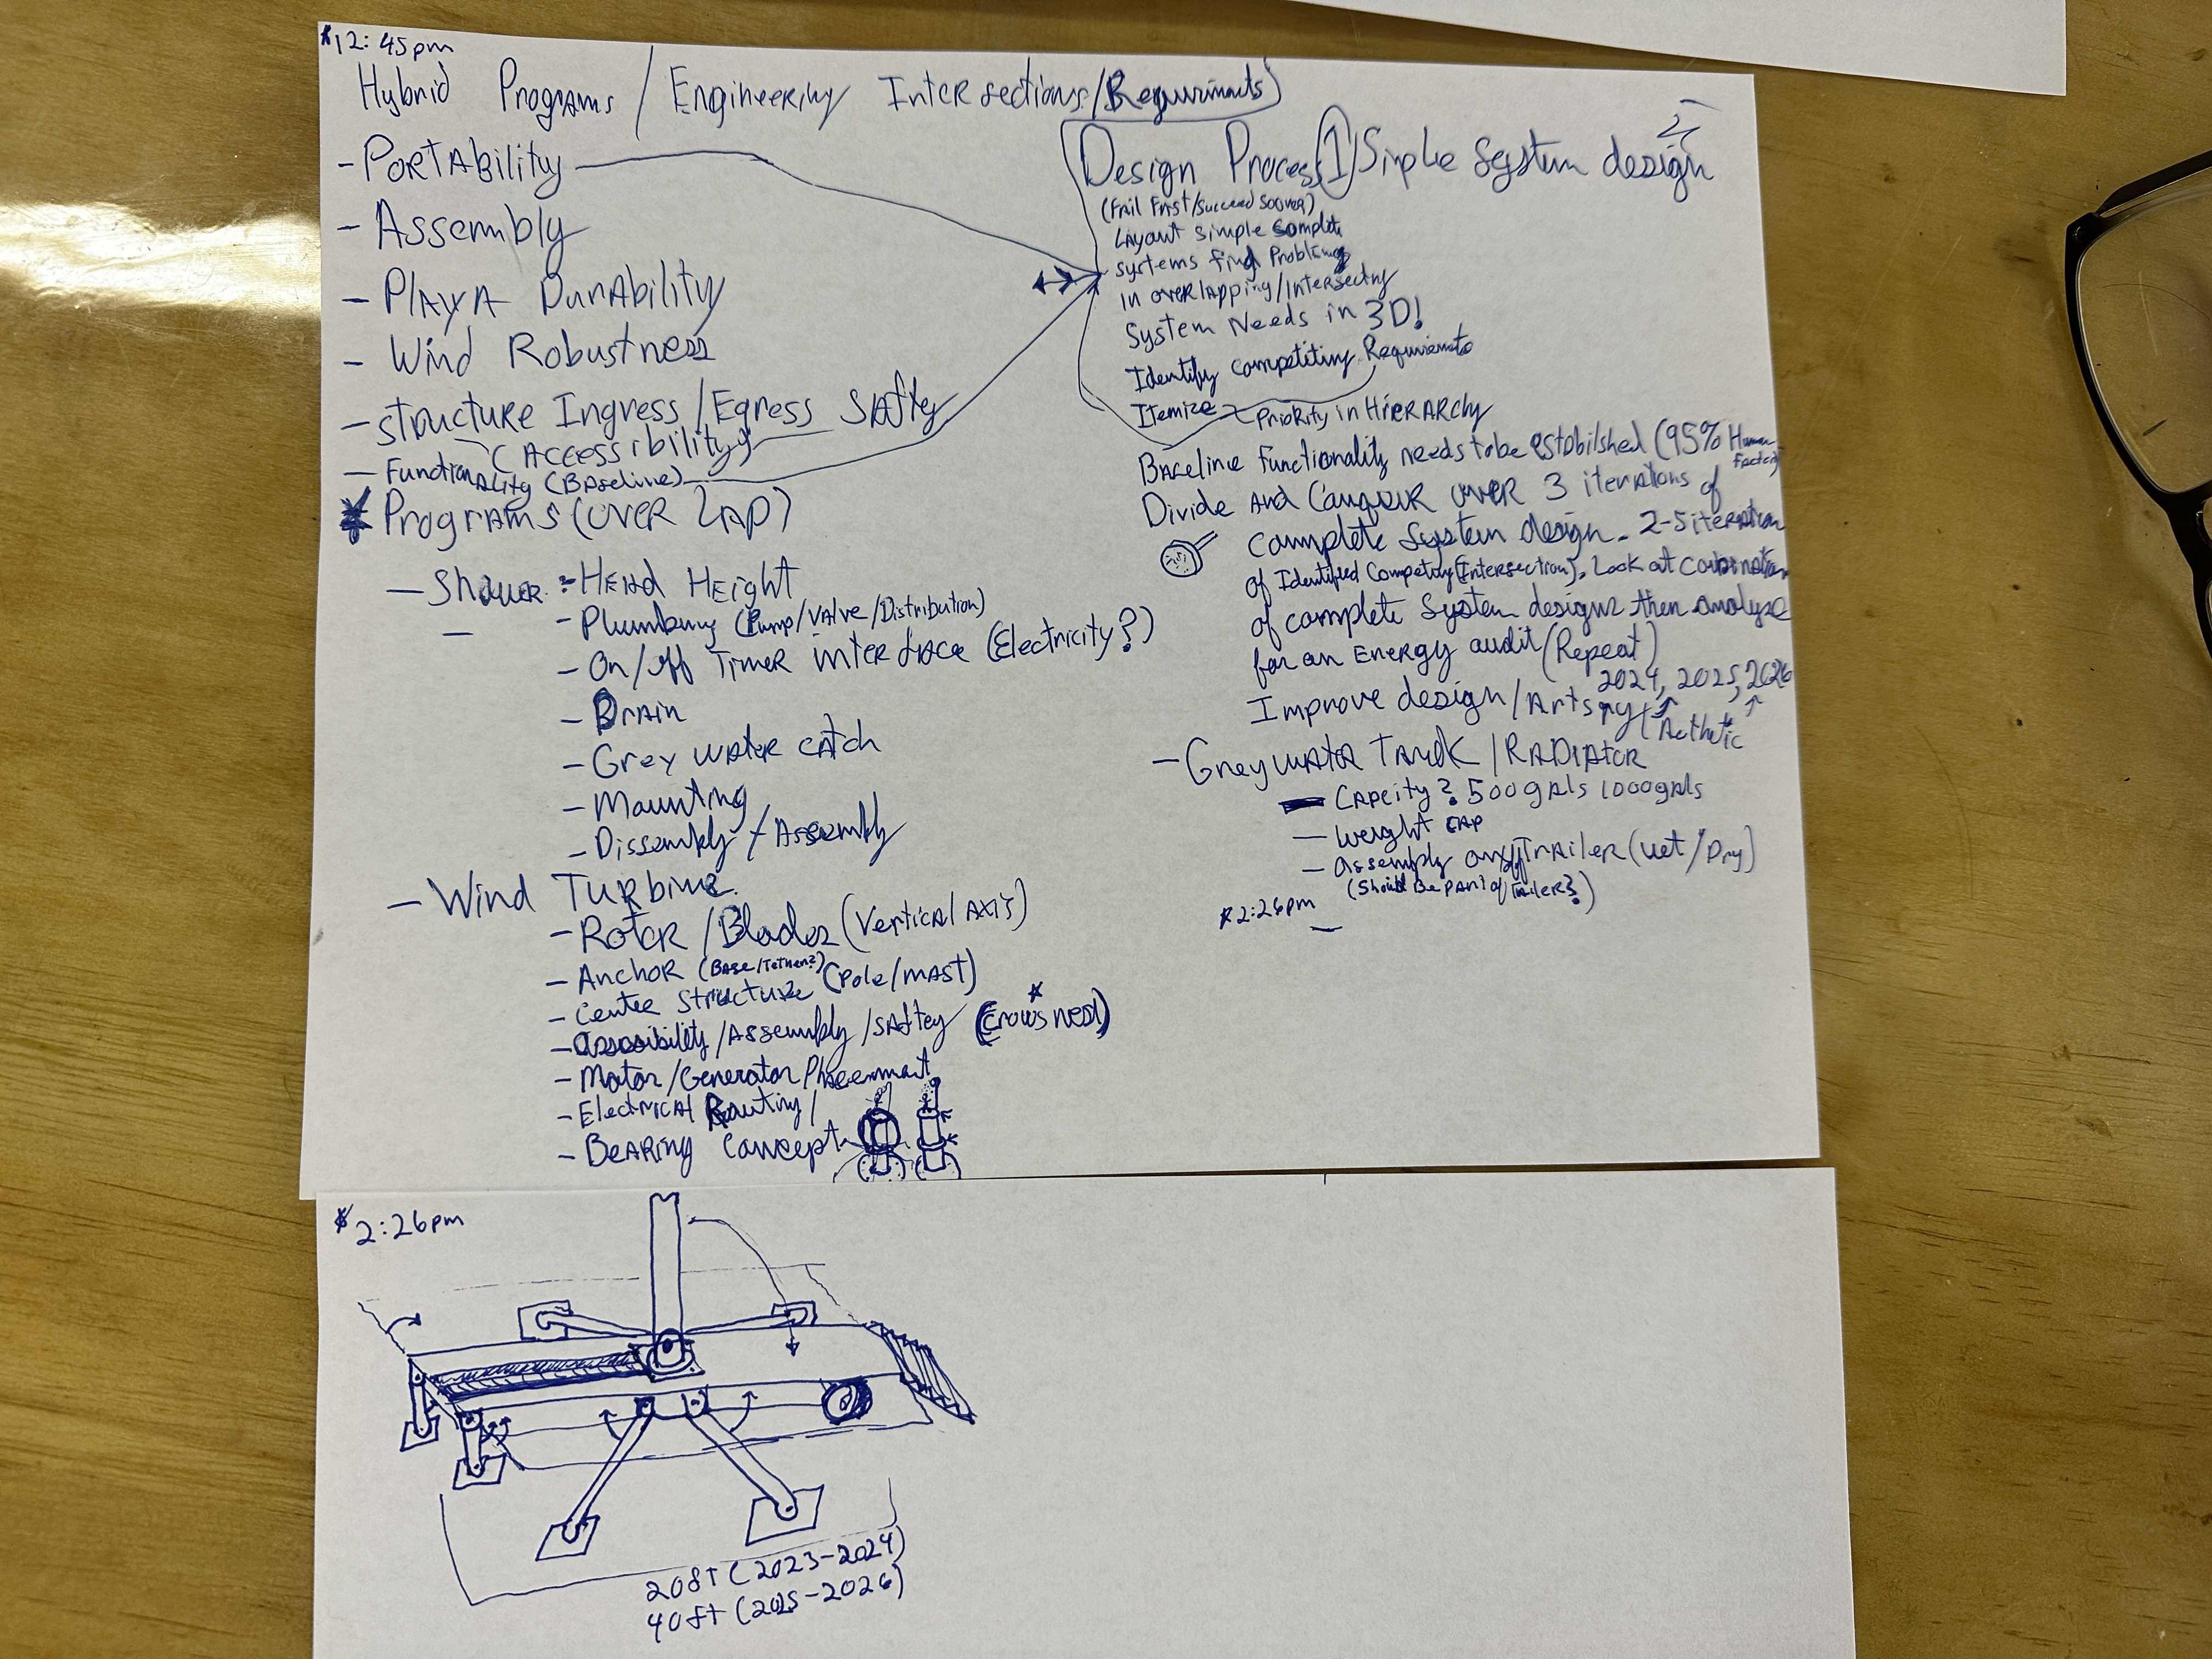 *12:45pm
Hybrid Programs / Engineering Intersections/Requirments
- PORTAbility
- Assembly
- PlAyA DurAbility
- Wind Robustness
- Structure Ingress/Egress SAfty
(Accessibility)
- Functionality (BAseline)
* Programs (OVER LAP)
- Shower - HEAD HEight
- Plumbing (Pump/VAlve/Distribution)
- On/off Timer interface (Electricity?)
- Drain
- Grey wAter cAtch
- Mounting
- Dissembly / Assembly
- Wind TURbine
- RotoR / Blades (VerticAl Axis)
- AnchoR (BAse/Tether?)
- Center StructuRe (Pole/mAst)
- assosibility/Assembly/sAftey (Crows nest)
*
- Motor/Generator Placenment
- ElectricAl Routing/
- BeARing Concept
2
Design Process 1 Simple System design
(FAil FAst/Succeed Sooner)
LAyout simple complete
systems find Problems
in overlApping/Intersecting
System Needs in 3D!
Identify Competiting Requirements
Itemize Priority in HiERARchy
BAseline functionality needs to be estabilshed (95% Human Factors)
Divide And Conquer over 3 iterations of
complete System design - 2-5 iteration
of Identified Competing (Intersection), Look at combination
of complete System designs then analyze
for an Energy audit (Repeat)
2024, 2025, 2026
Improve design/Artsyy (Aethetic
- GreywAter TAnk / RADiAtoR
- CApcity? 500gAls 1000gAls
- weight CAP
- assembly on/off TrAiler (Wet/Dry)
(Should Be pArt of TrAileR?)
*2:26pm
*2:26pm
20ft (2023-2024)
40ft (2025-2026)